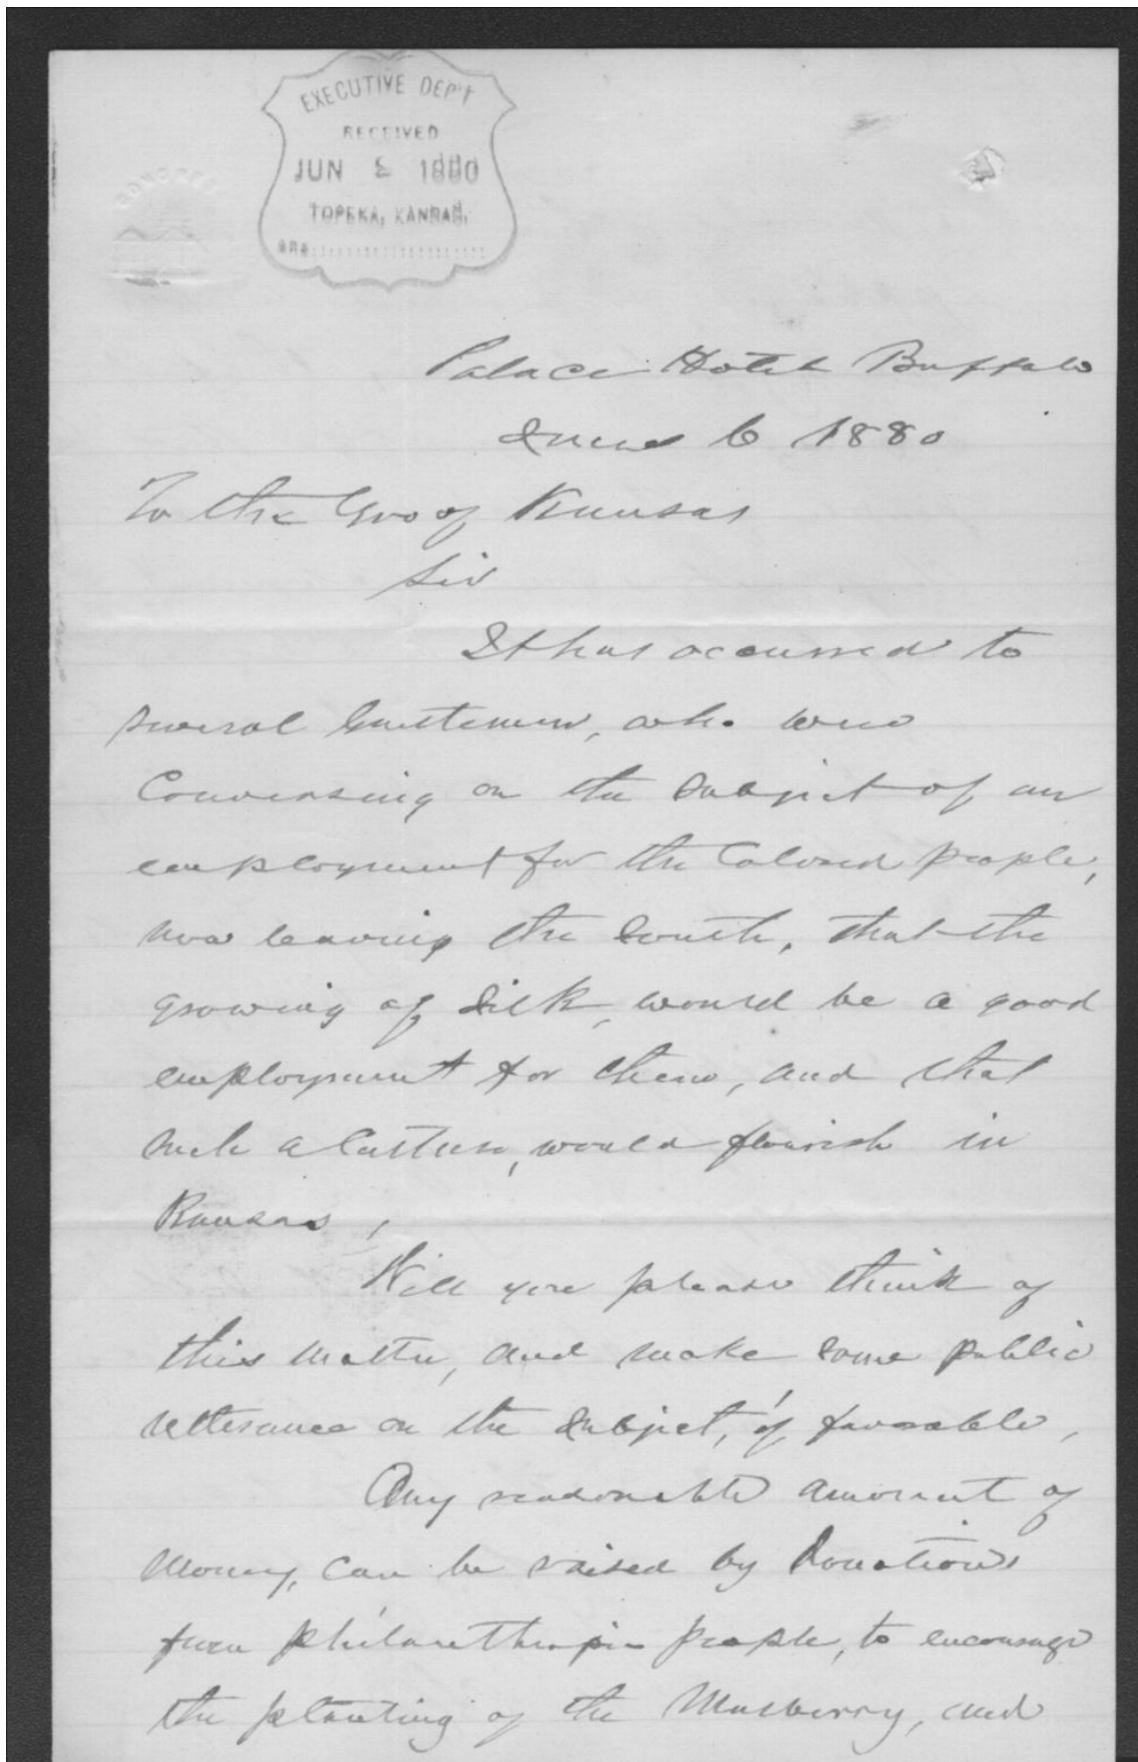 EXECUTIVE DEP'T
RECEIVED
JUN 1880
TOPEKA, KANSAS.
CONGRESS
Palace Hotel Buffalo
June 6 1880
To the Gov of Kansas
Sir
It has occurred to
several Gentemen, who were
Conversing on the Subject of an
employment for the Colored people,
now leaving the South, that the
growing of Silk, would be a good
employment for them, and that
such a Culture, would flourish in
Kansas,
Will you please think of
this matter, and make some public
utterance on the Subject, if favorable,
Any reasonable amount of
Money, can be raised by Donations
from philanthropic people, to encourage
the planting of the Mulberry, and